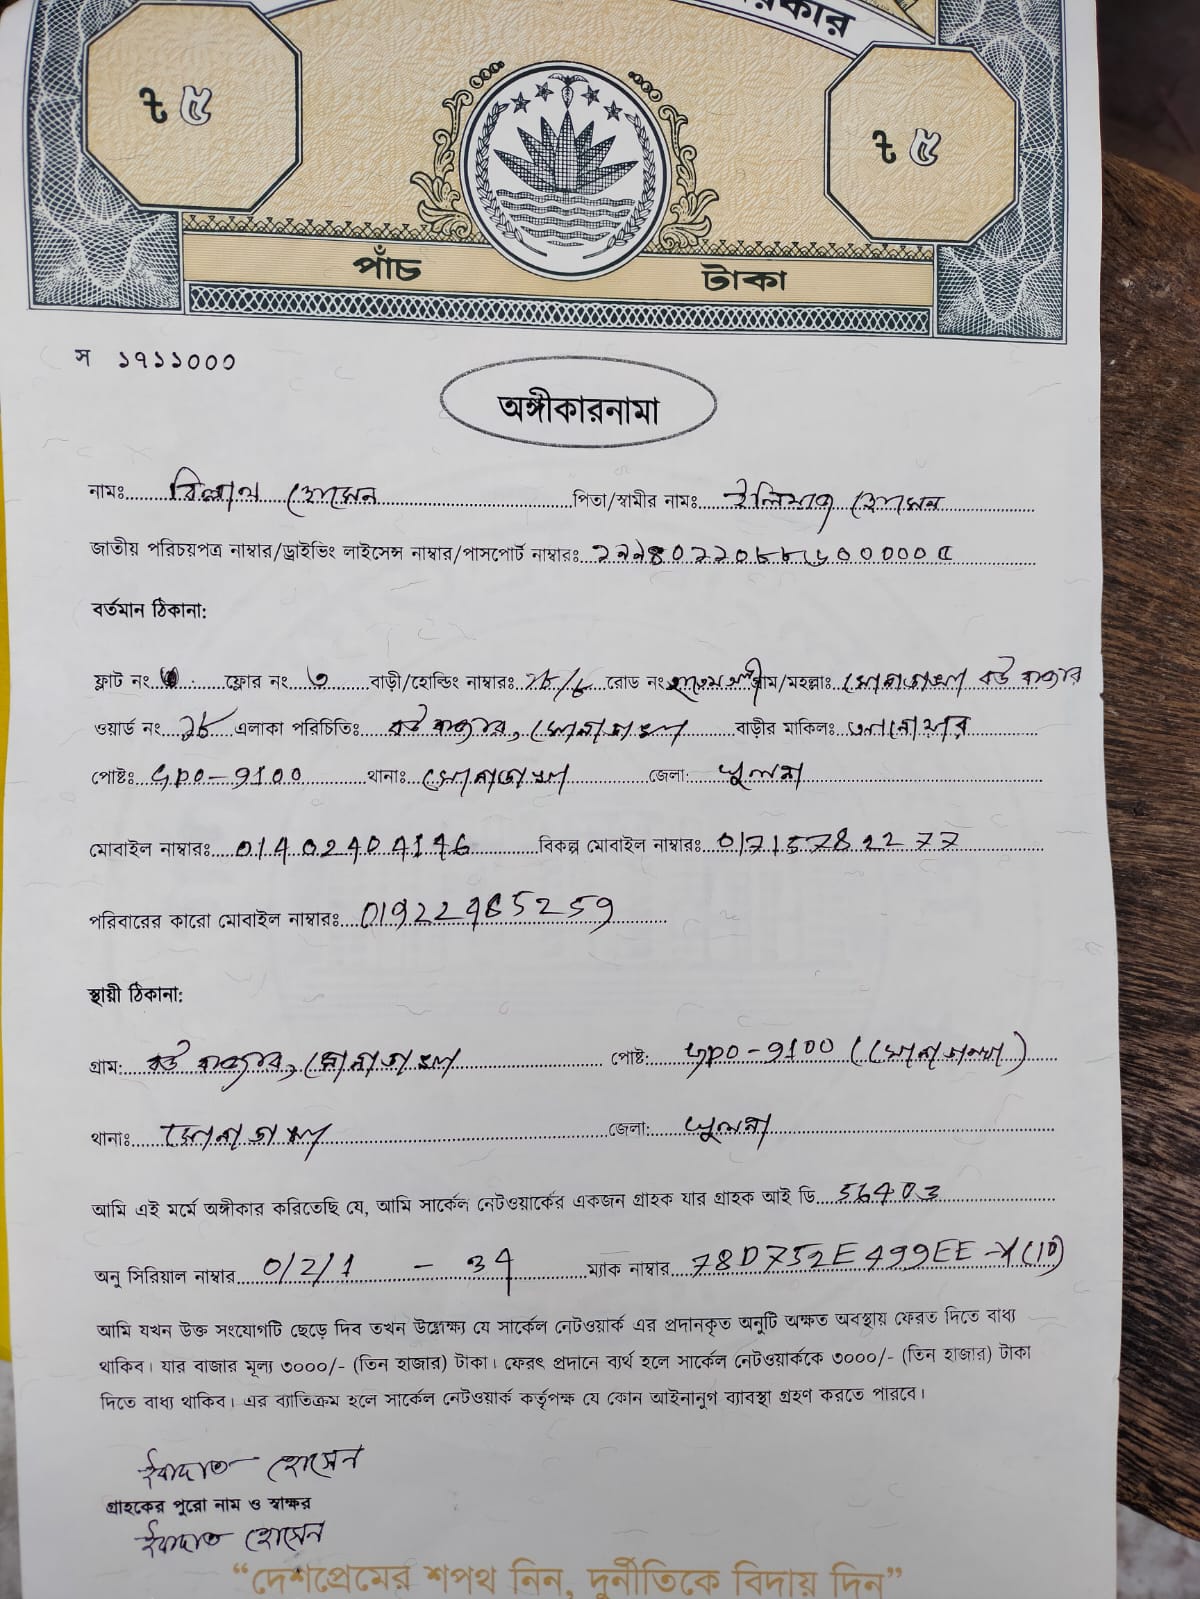 ৳ ৫
৳ ৫
পাঁচ টাকা
স ১৭১১০০০
অঙ্গীকারনামা
নামঃ বিল্লাল হোসেন পিতা/স্বামীর নামঃ হোসেন
জাতীয় পরিচয়পত্র নাম্বার/ড্রাইভিং লাইসেন্স নাম্বার/পাসপোর্ট নাম্বারঃ
বর্তমান ঠিকানা:
ফ্লাট নং ফ্লোর নং ৩ বাড়ী/হোল্ডিং নাম্বারঃ রোড নং গ্রাম/মহল্লাঃ সোনাডাঙ্গা বউ বাজার
ওয়ার্ড নং ১৮ এলাকা পরিচিতিঃ বউ বাজার, সোনাডাঙ্গা বাড়ীর মাকিলঃ আনোয়ার
পোষ্টঃ GPO-9100 থানাঃ সোনাডাঙ্গা জেলা: খুলনা
মোবাইল নাম্বারঃ 01402404146 বিকল্প মোবাইল নাম্বারঃ 01715782277
পরিবারের কারো মোবাইল নাম্বারঃ 01922965259
স্থায়ী ঠিকানা:
গ্রাম: বউ বাজার, সোনাডাঙ্গা পোষ্ট: GPO-9100 (সোনাডাঙ্গা)
থানাঃ সোনাডাঙ্গা জেলা: খুলনা
আমি এই মর্মে অঙ্গীকার করিতেছি যে, আমি সার্কেল নেটওয়ার্কের একজন গ্রাহক যার গ্রাহক আই ডি 56403
অনু সিরিয়াল নাম্বার 0/2/1 - 34 ম্যাক নাম্বার 78D752E499EE
আমি যখন উক্ত সংযোগটি ছেড়ে দিব তখন উল্লেক্ষ্য যে সার্কেল নেটওয়ার্ক এর প্রদানকৃত অনুটি অক্ষত অবস্থায় ফেরত দিতে বাধ্য
থাকিব। যার বাজার মূল্য ৩০০০/- (তিন হাজার) টাকা। ফেরৎ প্রদানে ব্যর্থ হলে সার্কেল নেটওয়ার্ককে ৩০০০/- (তিন হাজার) টাকা
দিতে বাধ্য থাকিব। এর ব্যাতিক্রম হলে সার্কেল নেটওয়ার্ক কর্তৃপক্ষ যে কোন আইনানুগ ব্যাবস্থা গ্রহণ করতে পারবে।
ইবাদাত হোসেন
গ্রাহকের পুরো নাম ও স্বাক্ষর
ইবাদাত হোসেন
“দেশপ্রেমের শপথ নিন, দুর্নীতিকে বিদায় দিন”